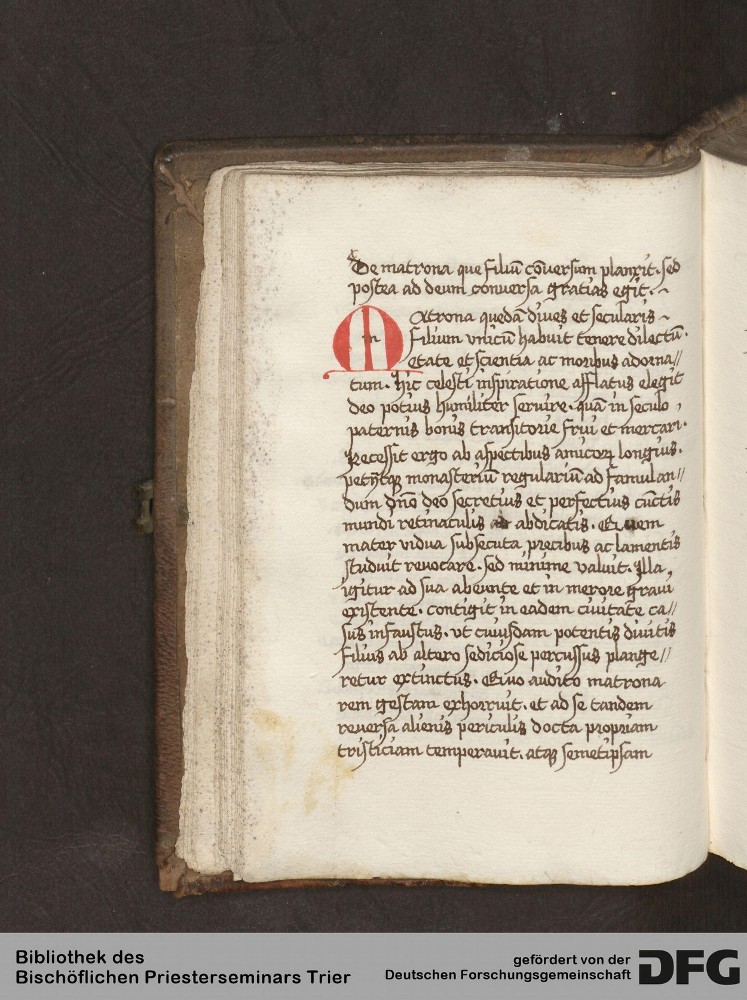 De matrona que filiū cōversum planxit. sed
postea ad deum conversa gratias egit.
Matrona quedā dives et secularis
filium vnicū habuit tenere dilectū.
etate et scientia ac moribus adorna//
tum. Hic celesti inspiratione afflatus elegit
deo potius humiliter servire. quā in seculo,
paternis bonis transitorie frui et mercari.
Recessit ergo ab aspectibus amicoꝝ longius.
petijtqꝫ monasteriū regulariū ad famulan//
dum dn̄o deo secretius et perfectius cūctis
mundi retinaculis abdicatis. Quem
mater vidua subsecuta precibus ac lamentis
studuit revocare. sed minime valuit. Illa
igitur ad sua abeunte et in merore gravi
existente. contigit in eadem civitate ca//
sus infaustus. vt cuiusdam potentis divitis
filius ab altero sediciose percussus plange//
retur extinctus. Quo audito matrona
rem gestam exhorruit. et ad se tandem
reversa alienis periculis docta propriam
tristiciam temperavit. atqꝫ semetipsam
Bibliothek des
Bischöflichen Priesterseminars Trier
gefördert von der
Deutschen Forschungsgemeinschaft
DFG